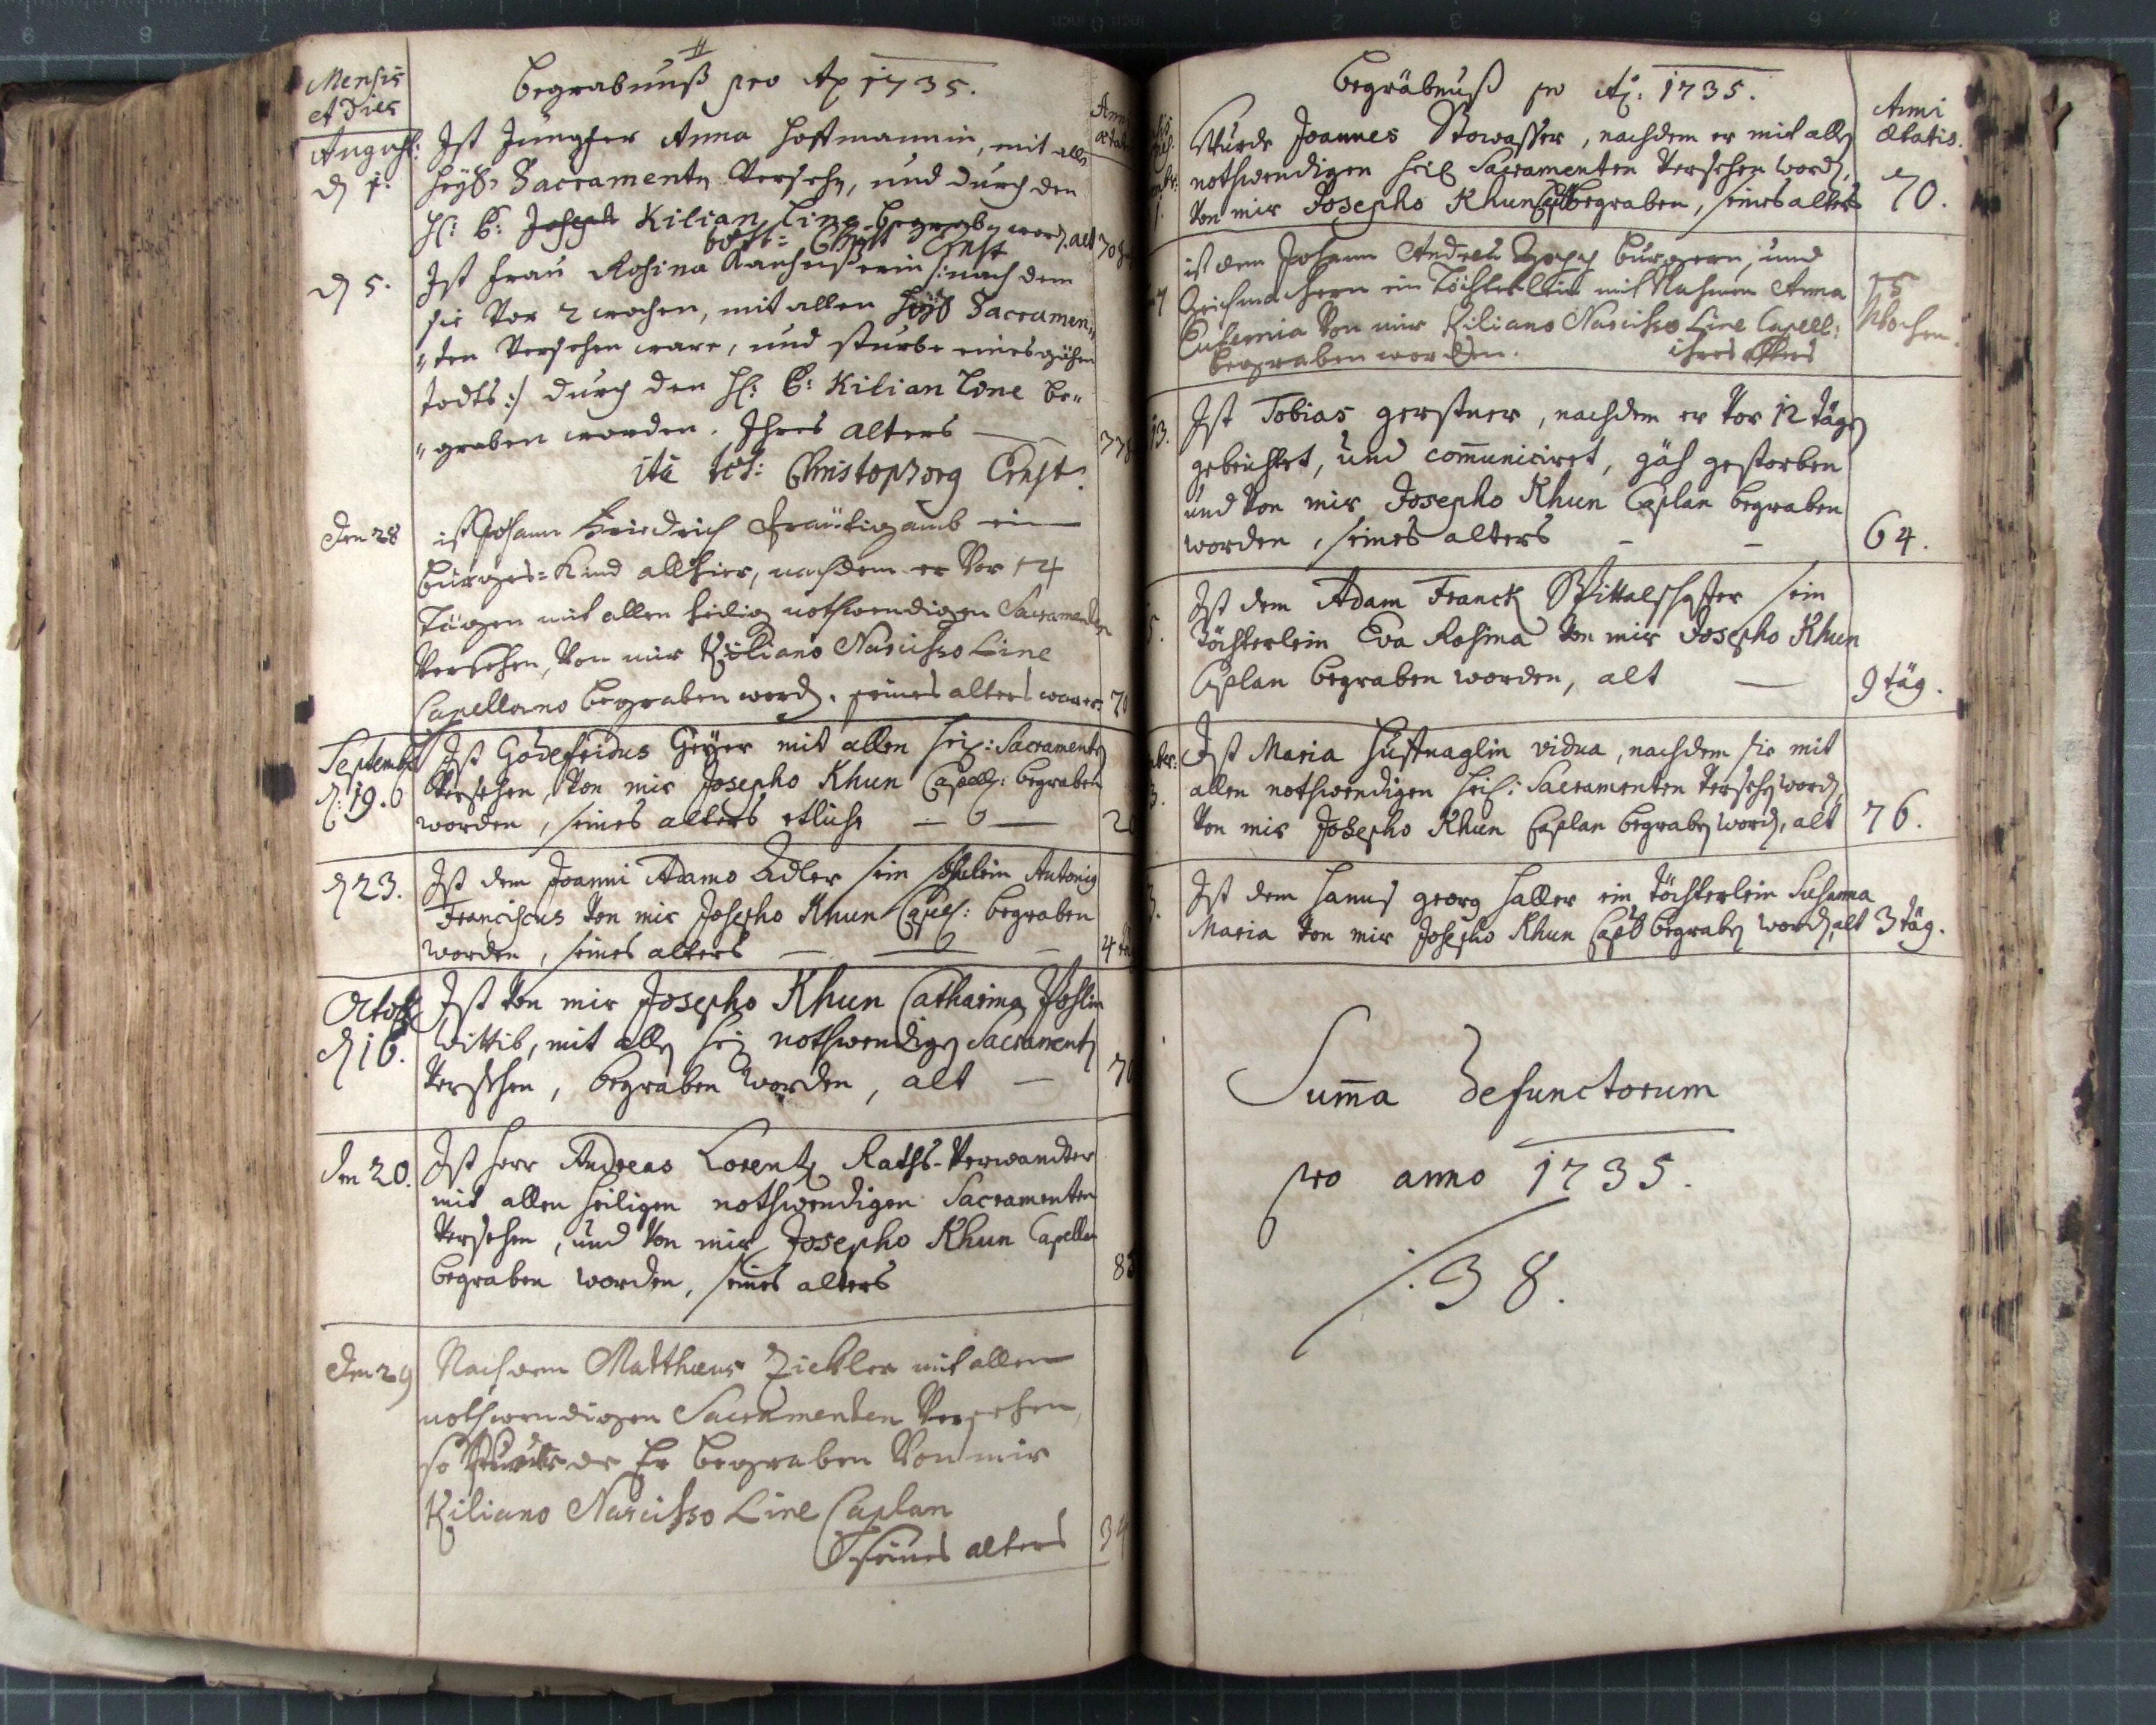 Mensis
et Dies
Begrabnuß pro Ao 1735.
August:
d 1.
Ist Jungfer Anna Hoffmannin, mit alln
heyl: Sacramentn Versehn, und durch den
H: C: Joseph Kilian Line begrabn word. alt 70
d 5.
Ist frau Rosina nach dem
sie Vor 2 wochen, mit allen heyl Sacramen„
„ten Versehen ware, und sturbe eines gähen
todts:/ durch den H: C: Kilian Line be„
„graben worden. Ihres alters
ita test: Christoph Ernst.
den 28
ist Johann Friedrich Preütigamb ein
burgers=Kind allhier, nachdem er Vor 14
Tägen mit allen heilig nothwendigen Sacramenten
Versehen, Von mir Kiliano Narcisso Line
Capellano begraben word. seines alters ware 70
Septemb
d: 19.
Ist Godefridus Geyer mit allen heil: Sacramentn
Versehen, Von mir Josepho Khun Capell: begraben
worden, seines alters etliche
d 23.
Ist dem Joanni Adamo Adler sein Söhnlein Antonig
Franciscus Von mir Josepho Khun Capell: begraben
worden, seines alters 4
Octob
d 16.
Ist Von mir Josepho Khun Catharina
Wittib, mit alln heil nothwendign Sacramentn
Versehen, begraben worden, alt 70
den 20.
Ist Herr Andreas Lorentz Raths-Verwandter
mit allen heiligen nothwendigen Sacramenten
Versehen, und Von mir Josepho Khun Capellan
begraben worden, seines alters
den 29
Nachdem Matthæus Zickler mit allen
nothwendigen Sacramenten Versehen,
so wurde Er begraben Von mir
Kiliano Narcisso Line Caplan
Seines alters
Begräbnuß pro Ao: 1735.
Anni
ætatis.
Wurde Joannes Stowasser, nachdem er mit alln
nothwendigen heil Sacramenten Versehen word,
Von mir Josepho Khun Capl begraben, seines alters 70.
ist dem Johann Andreu burgern, und
ein Töchterlein mit Nahmen Anna
Eufemia Von mir Kiliano Narcisso Line Capell:
begraben worden. ihres Alters
15
Wochen.
13.
Ist Tobias gerstner, nachdem er Vor 12 tägn
gebeichtet, und com̄uniciret, gäh gestorben
und Von mir Josepho Khun Caplan begraben
worden, seines alters 64.
Ist dem Adam Franck sein
Töchterlein Eva Rosina Von mir Josepho Khun
Caplan begraben worden, alt 9 täg.
Ist Maria Hüttnaglin vidua, nachdem sie mit
allen nothwendigen heil: Sacramenten Versehn word,
Von mir Josepho Khun Caplan begrabn word, alt 76.
Ist dem Hanns georg Haller ein töchterlein Susanna
Maria Von mir Josepho Khun Capl begrabn word, alt 3 täg.
Sum̄a Defunctorum
pro anno 1735.
/. 38.